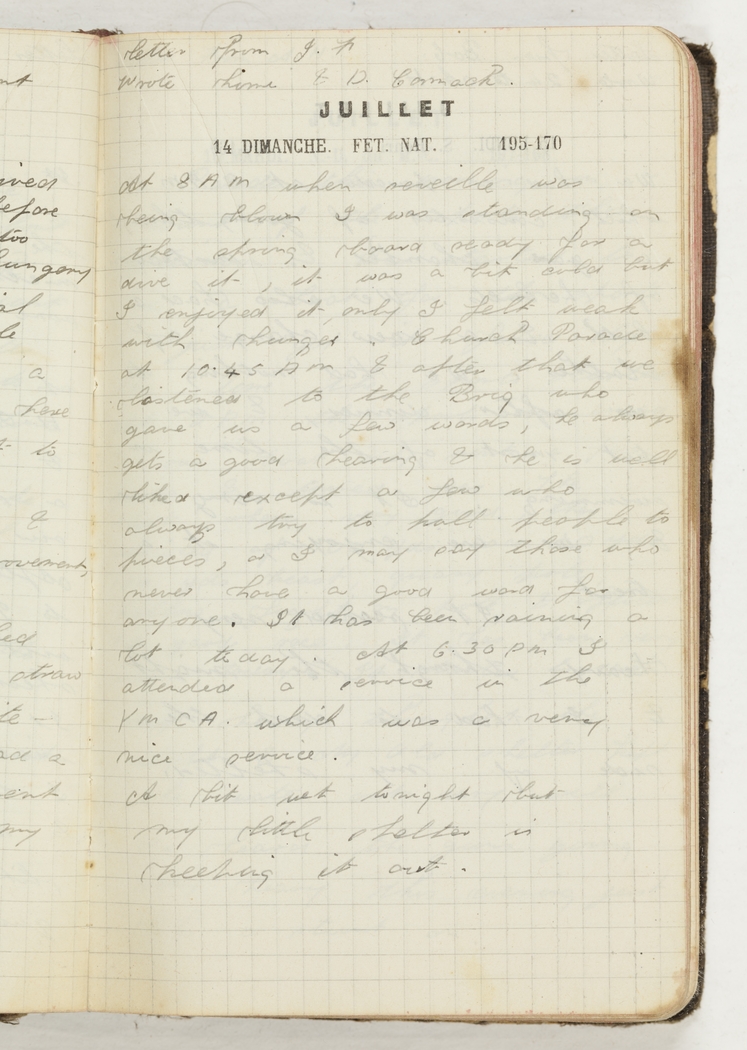 letter from J. F
Wrote home & D. Cormack.
JUILLET
14 DIMANCHE. FET. NAT. 195-170
At 8 AM when reveille was
being blown I was standing on
the spring board ready for a
dive it, it was a bit cold but
I enjoyed it, only I felt weak
with hunger. Church Parade
at 10.45 AM & after that we
listened to the Brig who
gave us a few words, he always
gets a good hearing & he is well
liked except a few who
always try to pull people to
pieces, or I may say those who
never have a good word for
anyone. It has been raining a
lot today. At 6.30 PM I
attended a service in the
YMCA. which was a very
nice service.
A bit wet tonight but
my little shelter is
keeping it out.
ived
before
too
hungary
a
have
to
&
ovement,
straw
ad a
ent
my